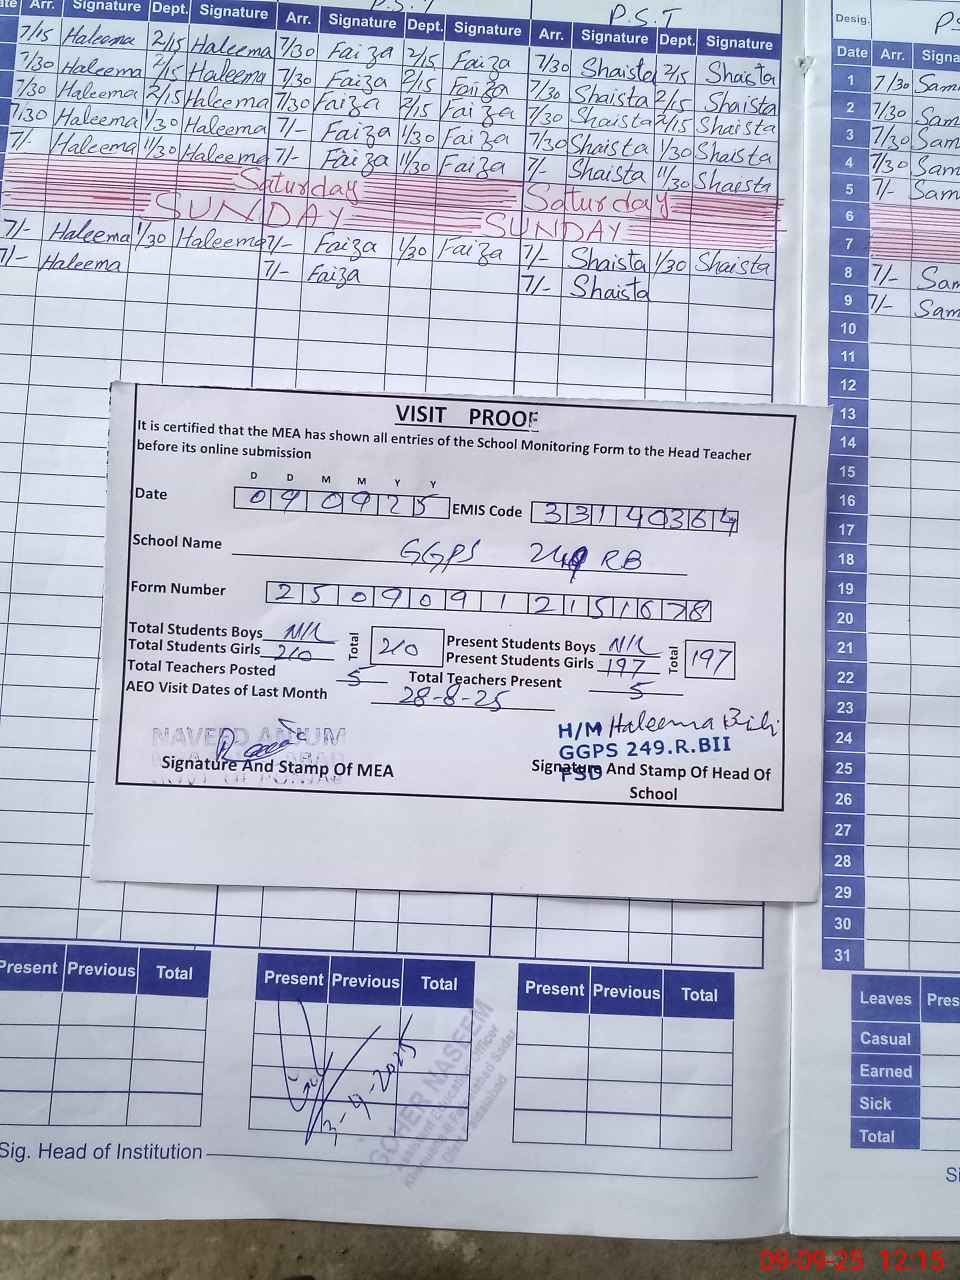 P.S.T
P.S.T
Date Arr. Signature Dept. Signature Arr. Signature Dept. Signature Arr. Signature Dept. Signature
7/15 Haleema 2/15 Haleema 7/30 Faiza 2/15 Faiza 7/30 Shaista 2/15 Shaista
7/30 Haleema 2/15 Haleema 7/30 Faiza 2/15 Faiza 7/30 Shaista 2/15 Shaista
7/30 Haleema 2/15 Haleema 7/30 Faiza 2/15 Faiza 7/30 Shaista 2/15 Shaista
7/30 Haleema 1/30 Haleema 7/- Faiza 1/30 Faiza 7/30 Shaista 1/30 Shaista
7/- Haleema 11/30 Haleema 7/- Faiza 11/30 Faiza 7/- Shaista 11/30 Shaista
Saturday Saturday
SUNDAY SUNDAY
7/- Haleema 1/30 Haleema 7/- Faiza 1/30 Faiza 7/- Shaista 1/30 Shaista
7/- Haleema 7/- Faiza 7/- Shaista
Desig.
Date Arr. Signa
1 7/30 Sam
2 7/30 Sam
3 7/30 Sam
4 7/30 Sam
5 7/- Sam
6
7
8 7/- Sam
9 7/- Sam
10
11
12
13
14
15
16
17
18
19
20
21
22
23
24
25
26
27
28
29
30
31
VISIT PROOF
It is certified that the MEA has shown all entries of the School Monitoring Form to the Head Teacher
before its online submission
D D M M Y Y
Date 0 9 0 9 2 5 EMIS Code 3 3 1 4 0 3 6 4
School Name GGPS 249 RB
Form Number 2 5 0 9 0 9 1 2 1 5 1 6 7 8
Total Students Boys Nil Total 210 Present Students Boys Nil Total 197
Total Students Girls 210 Present Students Girls 197
Total Teachers Posted 5 Total Teachers Present 5
AEO Visit Dates of Last Month 28-8-25
NAVEED ANJUM
H/M Haleema Bibi
GGPS 249.R.BII
FSD
Signature And Stamp Of MEA
Signature And Stamp Of Head Of
School
Present Previous Total
Present Previous Total
Present Previous Total
GOHER NASEEM
Assistant Education Officer
Leaves Pres
Casual
Earned
Sick
Total
Sig. Head of Institution
Si
09-09-25 12:15